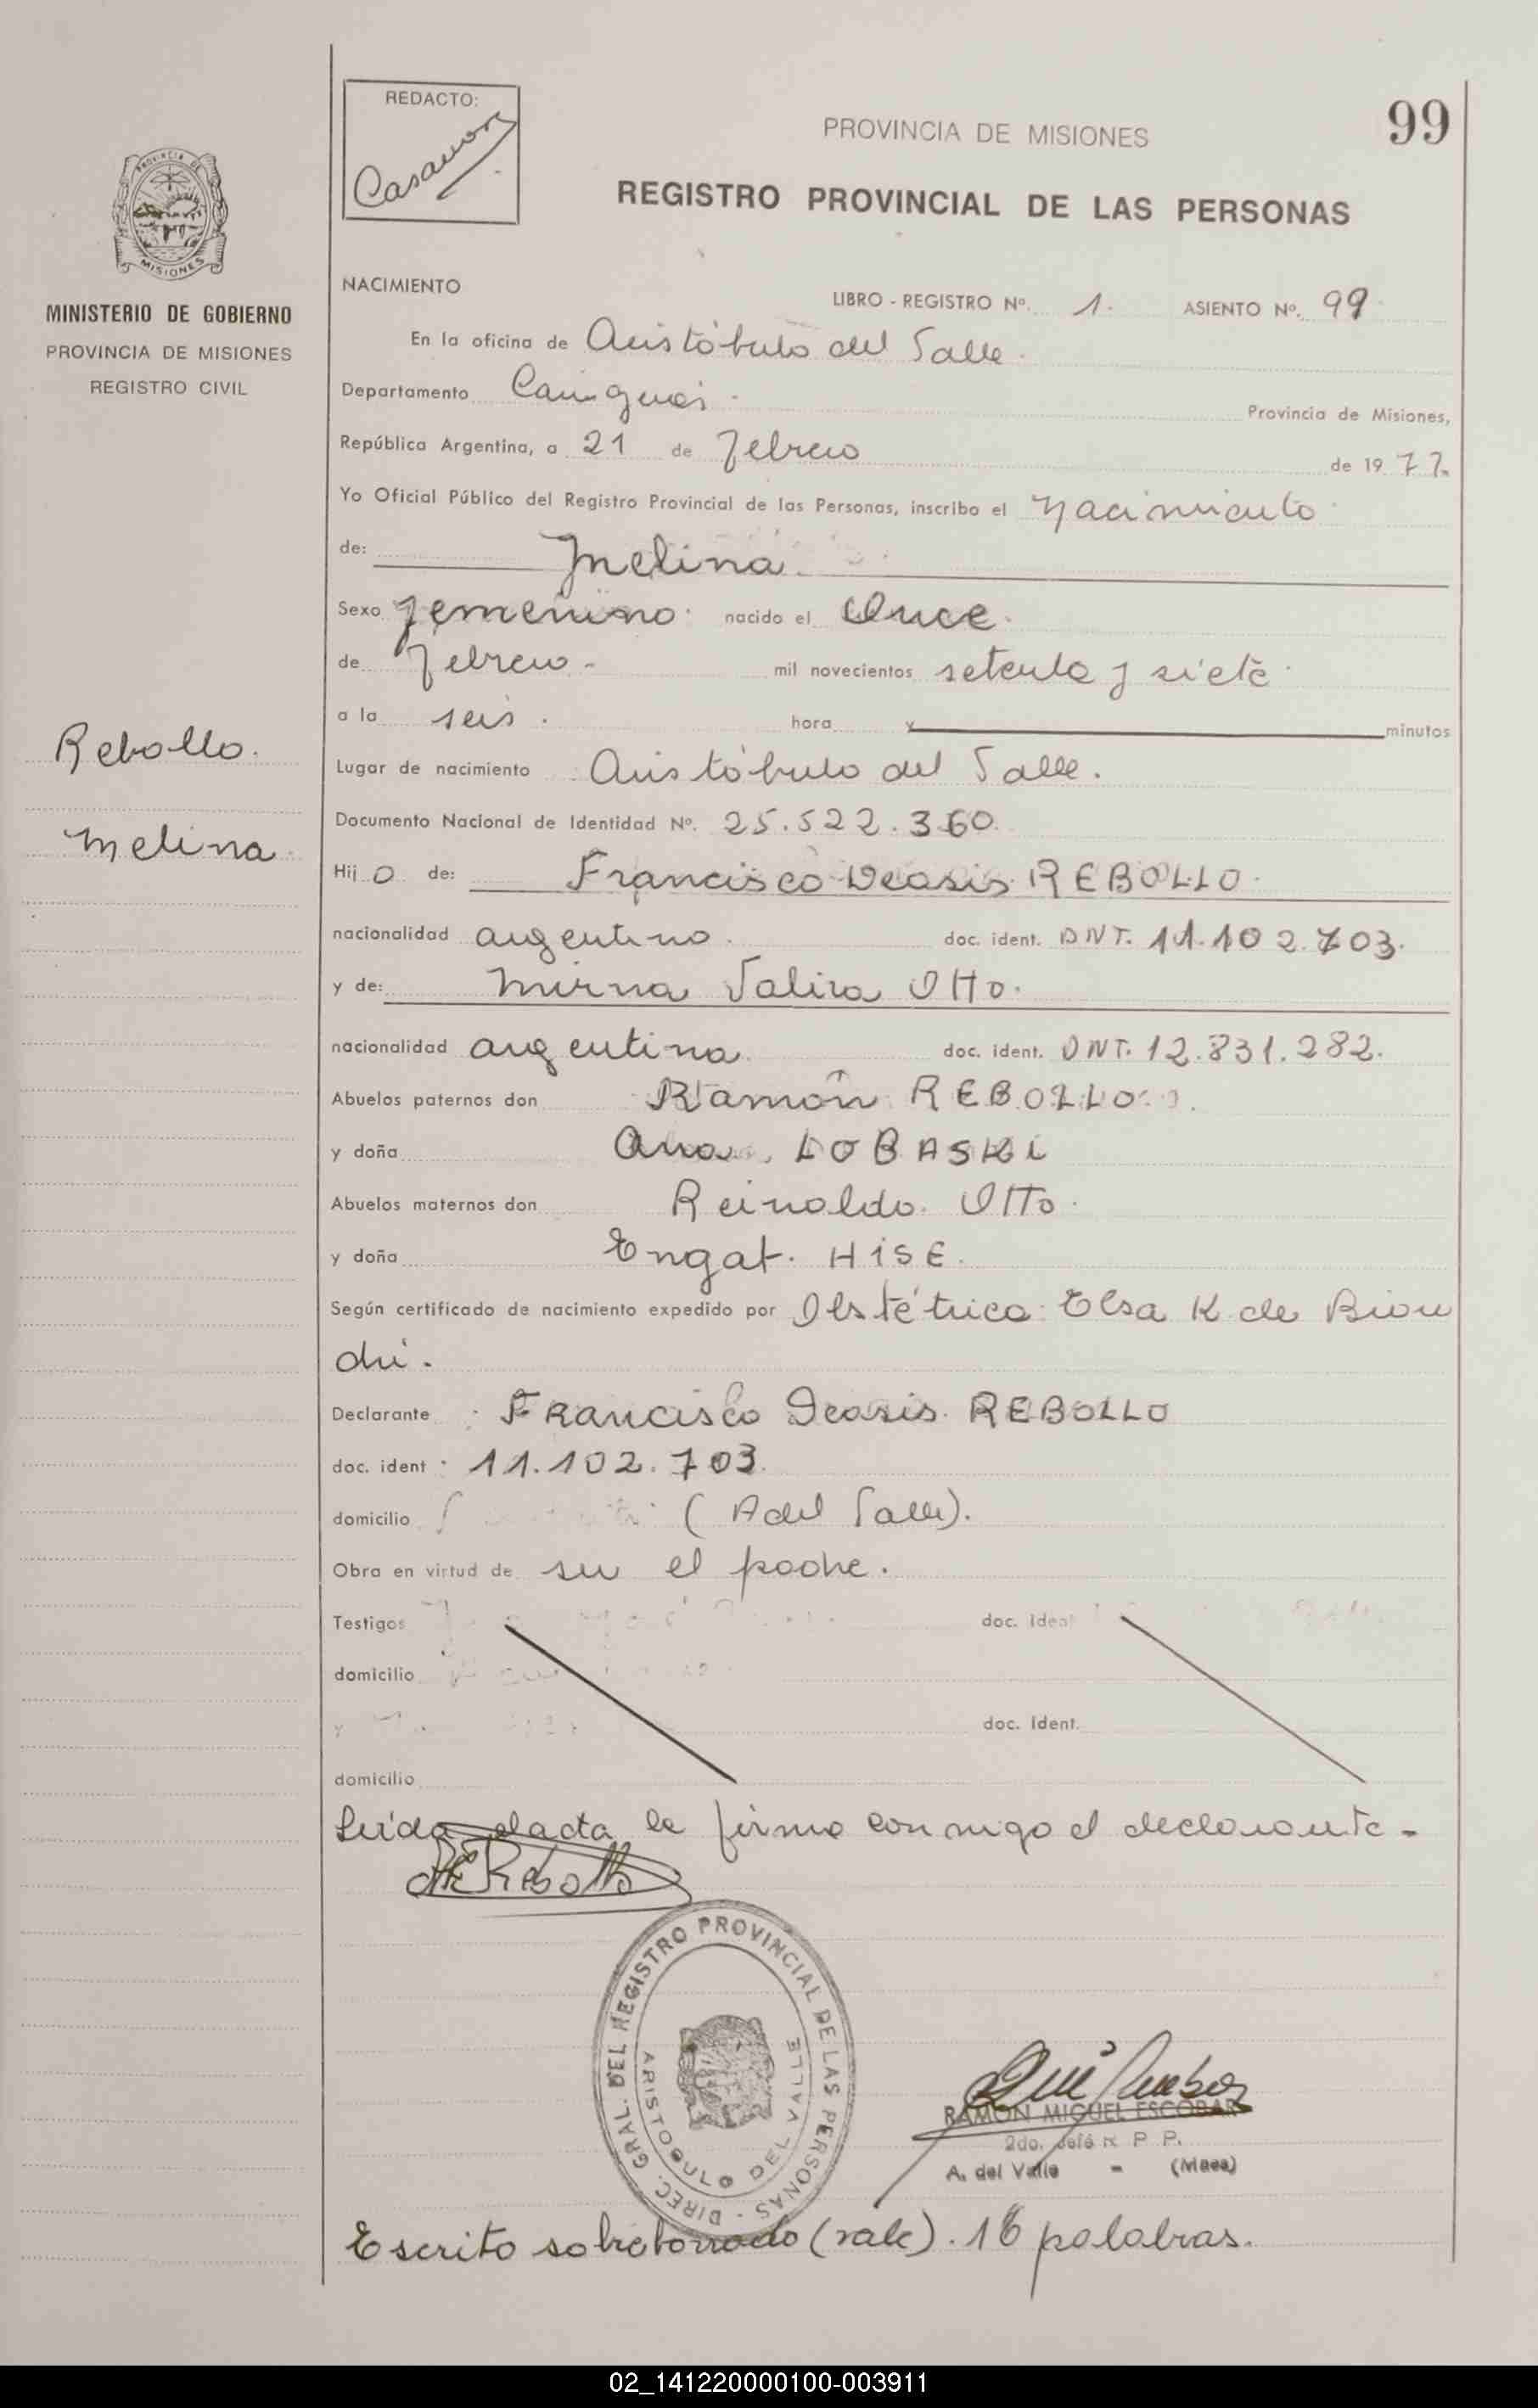 REDACTO:
Casamor
99
PROVINCIA DE MISIONES
REGISTRO PROVINCIAL DE LAS PERSONAS
PROVINCIA DE
MISIONES
MINISTERIO DE GOBIERNO
PROVINCIA DE MISIONES
REGISTRO CIVIL
NACIMIENTO
LIBRO - REGISTRO Nº. 1. ASIENTO Nº. 99
En la oficina de Aristóbulo del Valle.
Departamento Cainguas. Provincia de Misiones,
República Argentina, a 21 de Febrero de 1977.
Yo Oficial Público del Registro Provincial de las Personas, inscribo el Nacimiento
de: Melina.
Sexo Femenino. nacido el Once.
de Febrero. mil novecientos setenta y siete
a la seis. hora y minutos
Rebollo.
Lugar de nacimiento Aristóbulo del Valle.
Documento Nacional de Identidad Nº. 25.522.360.
Melina.
Hij o de: Francisco Deasis REBOLLO.
nacionalidad argentino. doc. ident. DNT. 11.102.703.
y de: Mirna Valira Otto.
nacionalidad argentina. doc. ident. DNT. 12.831.282.
Abuelos paternos don Ramón REBOLLO.
y doña Ana LOBASKI
Abuelos maternos don Reinoldo Otto.
y doña Engat. HISE.
Según certificado de nacimiento expedido por Obstétrica: Elsa K de Bion
di.
Declarante: Francisco Deasis REBOLLO
doc. ident: 11.102.703.
domicilio (A del Valle).
Obra en virtud de su el padre.
Testigos doc. Ident
domicilio
y doc. Ident.
domicilio
Leida el acta la firma conmigo el declarante.
Rebollo
DIREC. GRAL. DEL REGISTRO PROVINCIAL DE LAS PERSONAS -
ARISTOBULO DEL VALLE
RAMON MIGUEL ESCOBAR
2do. Jefe R P P.
A. del Valle - (Mnes)
Escrito sobreborrado (vale). 16 palabras.
02_141220000100-003911